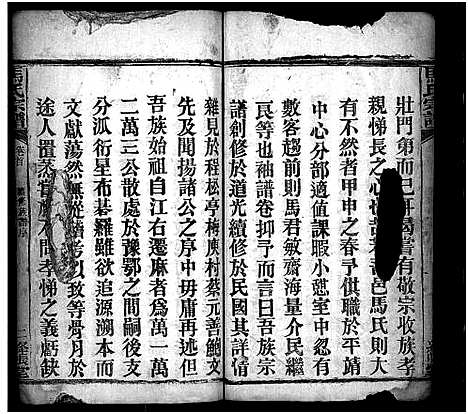 壯門第而已耳
有敬宗收族孝
親悌長之心也
邑馬氏則大
有不然者甲申之春予供職於平靖
中心分部適值課暇小憩室中忽有
數客趨前則馬君敏齋海量介民繼
良等也袖譜卷抑揚而言曰吾族宗
譜創修於道光續修於民國其詳清
雜見於程松亭梅庾村蔡元善鮑文
先及聞揚諸公之序中毋庸再述矣
吾族始祖自江右遷麻者為萬一萬
二萬三公散處於豫鄂之間嗣後支
分派衍星布碁羅雖欲追源溯本而
文獻蕩然無
骨月於
途人置蒸
不問孝悌之義虧缺
馬氏宗譜